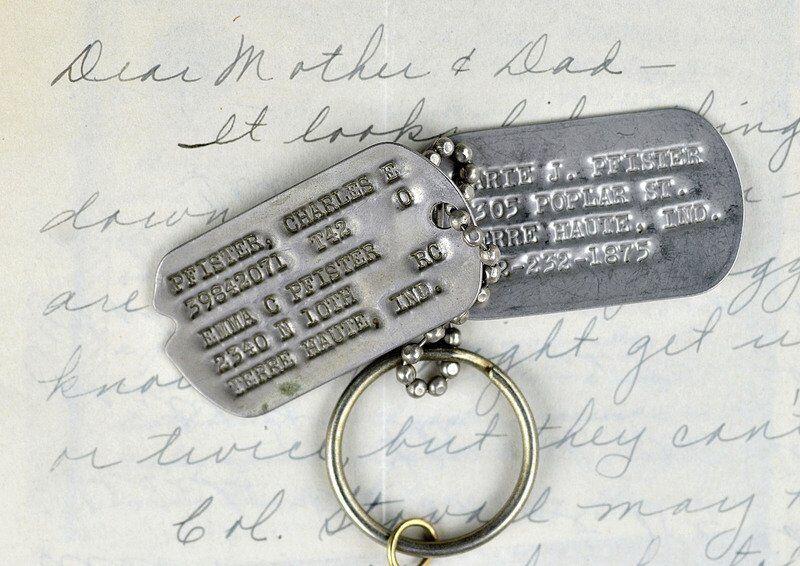 Dear Mother & Dad —
It looks
down
are
get
or twice but they can't
Col. may
PFISTER, CHARLES E
39842071 T42 O
EMMA C PFISTER
2340 N 10TH RC
TERRE HAUTE, IND.
ARIE J. PFISTER
305 POPLAR ST.
ERRE HAUTE, IND.
2-232-1875